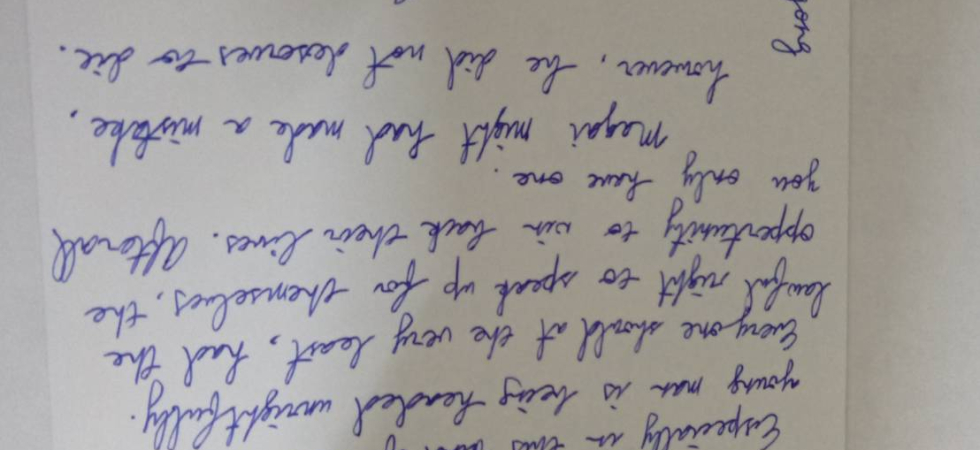 Especially in this
young man is being headed unrightfully.
Every one should at the very least, had the
lawful right to speak up for themselves, the
opportunity to win back their lives. Afterall
you only have one.
Magai might had made a mistake,
however, he did not deserves to die.
ong